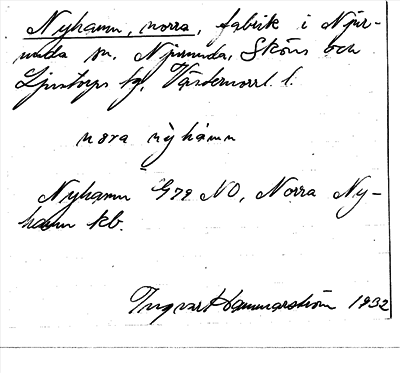 Nyhamn, norra, fabrik i Njur-
unda sn. Njurunda, Sköns och
Ljustorps tg, Västernorrl. l.
nora nỳhámn
Nyhamn G79 NO, Norra Ny-
hamn kb.
Ingvar Hammarström 1932